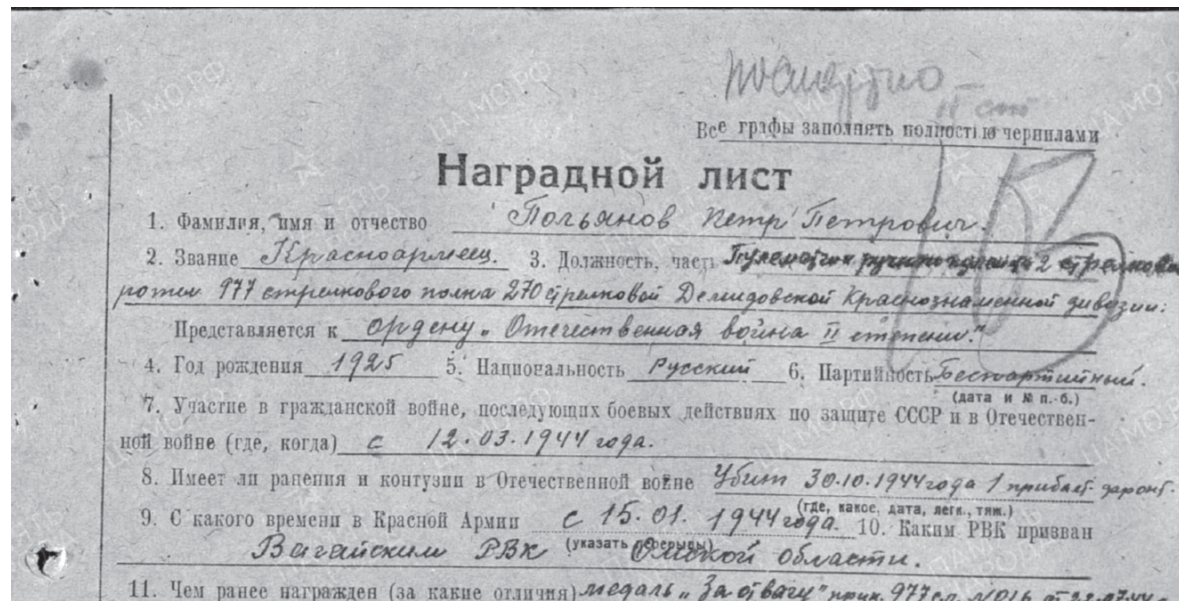 посмертно
II ст
Все графы заполнять полностью чернилами
Наградной лист
1. Фамилия, имя и отчество Польянов Петр Петрович.
2. Звание Красноармеец. 3. Должность, часть Пулеметчик ручного пулемета 2 стрелковой
роты 977 стрелкового полка 270 стрелковой Демидовской Краснознаменной дивизии.
Представляется к ордену „Отечественная война II степени."
4. Год рождения 1925 5. Национальность Русский 6. Партийность Беспартийный.
(дата и № п.-б.)
7. Участие в гражданской войне, последующих боевых действиях по защите СССР и в Отечествен-
ной войне (где, когда) с 12.03.1944 года.
8. Имеет ли ранения и контузии в Отечественной войне Убит 30.10.1944 года 1 прибалт. фронт.
(где, какое, дата, легк., тяж.)
9. С какого времени в Красной Армии с 15.01.1944 года. 10. Каким РВК призван
(указать перерывы)
Вагайским РВК Омской области.
11. Чем ранее награжден (за какие отличия) медаль „За отвагу" 977 сп. №016 от